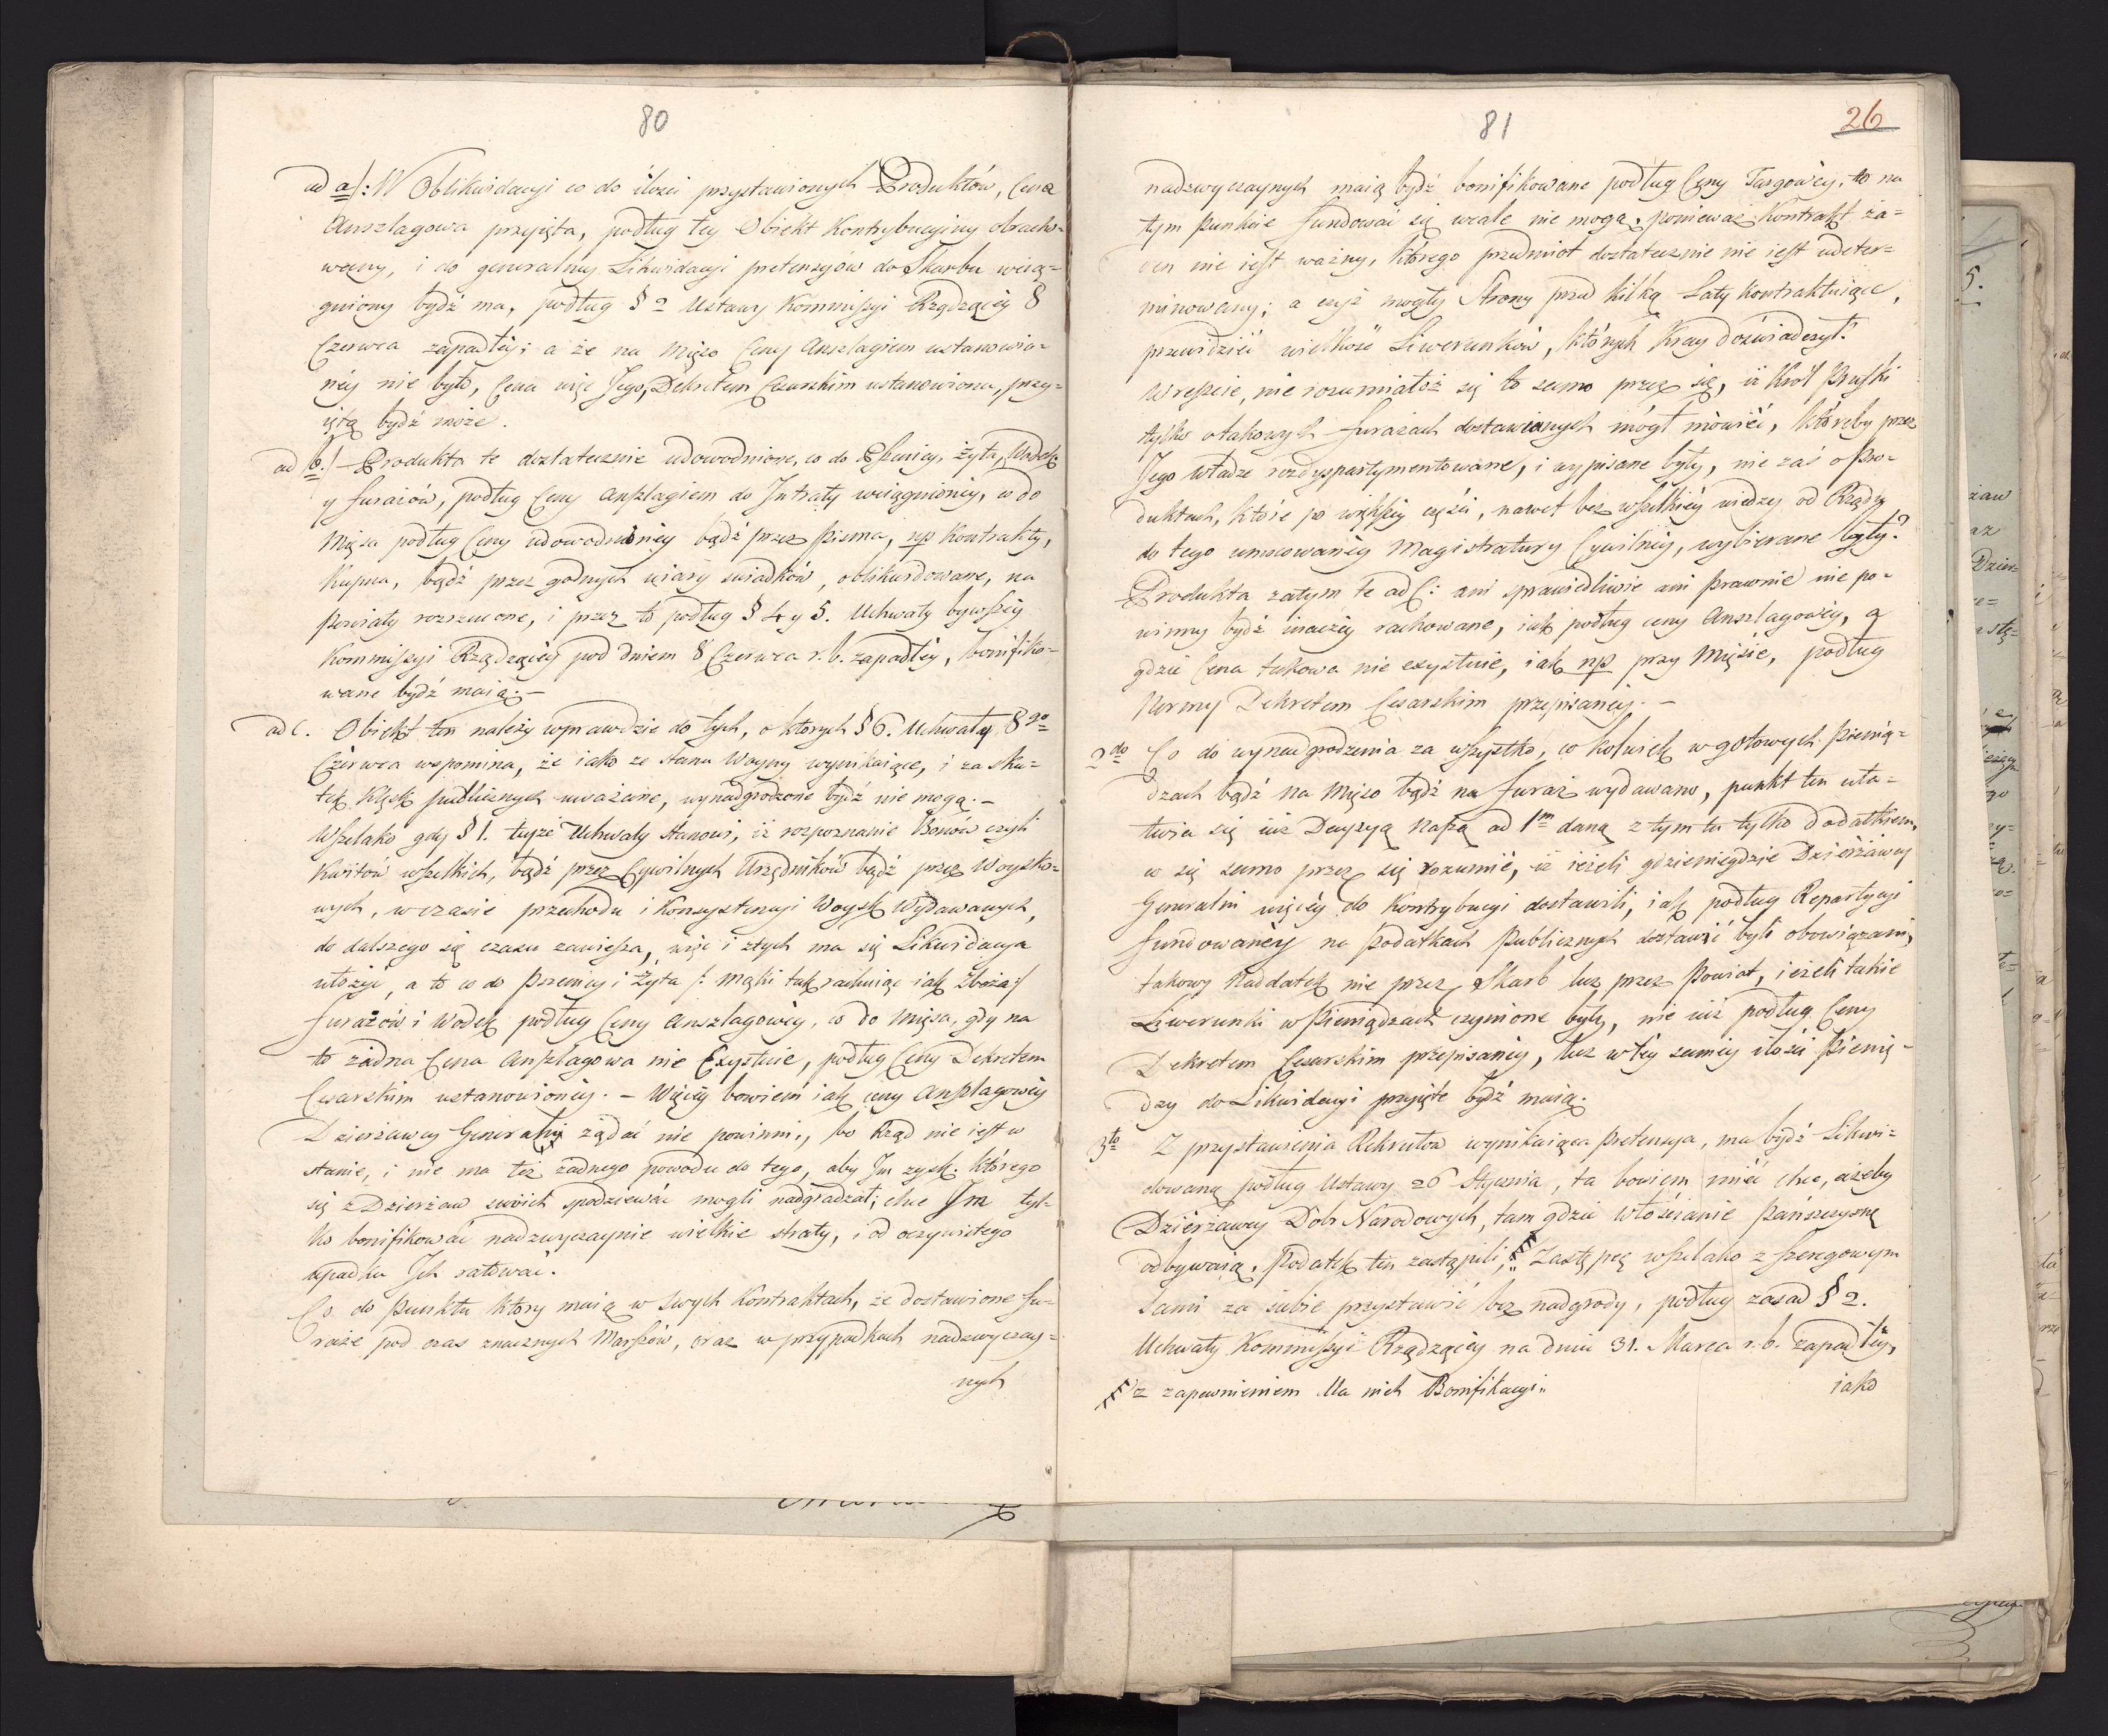 80
ad a/: W Oblikwidacyi co do ilości przystawionych Produktów, Cena
Anszlagowa przyięta, podług tey Obiekt Kontrybucyiny obracho-
wany, i do generalney Likwidacyi pretensyów do Skarbu wcią-
gniony bydź ma, podług § 2 Ustawy Kommissyi Rządzącéy 8
Czerwca zapadłéy; a że na Mięso Ceny Anszlagiem ustanowio-
néy nie było, Cena więc Jego, Dekretem Cesarskim ustanowiona, przy-
iętą bydź może.
ad b./ Produkta te dostatecznie udowodnione, co do Pszenicy, żyta, Wódek
y furażów, podług Ceny Anszlagiem do Intraty wciągnionéy, co do
Mięsa podług Ceny udowodnionéy bądź przez Pisma, np Kontrakty,
Kupna, bądź przez godnych wiary swiadków, oblikwidowane, na
Powiaty rozrzucone, i przez to podług § 4 y 5. Uchwały bywszéy
Kommissyi Rządzącéy pod dniem 8 Czerwca r. b. zapadłéy, bonifiko-
wane bydź maią.–
ad c. Obiekt ten należy wprawdzie do tych, o których § 6. Uchwały 8go
Czérwca wspomina, że iako ze stanu Woyny wynikaiące, i za sku-
tek Klęsk publicznych uważane, wynadgrodzone bydź nie mogą.–
Wszelako gdy § 1. teyże Uchwały stanowi, iż rozpoznanie Bonów czyli
Kwitów wszelkich, bądź przez Cywilnych Urzędników bądź przez Woysko-
wych, w czasie przechodu i Konsystencyi Woysk wydawanych,
do dalszego się czasu zawiesza, więc i z tych ma się Likwidacya
ułożyć, a to co do Pszenicy i Żyta /: mąki tak rachuiąc iak zboża:/
furażów i Wódek podług Ceny Anszlagowéy, co do Mięsa, gdy na
to żadna Cena Anszlagowa nie Exystuie, podług Ceny Dekretem
Cesarskim ustanowionéy.– Więcéy bowiem iak ceny Anszlagowéy
Dzierżawcy Generalni żądać nie powinni, bo Rząd nie iest w
stanie, i nie ma też żadnego powodu do tego, aby Im zysk, którego
się z Dzierżaw swoich spodziewać mogli nadgradzał; chce Im tyl-
ko bonifikować nadzwyczaynie wielkie straty, i od oczywistego
upadku Ich ratować.
Co do Punktu który maią w swych Kontraktach, że dostawione fu-
raże pod czas znacznych Marszów, oraz w przypadkach nadzwyczay-
nych
81
26
nadzwyczaynych maią bydź bonifikowane podług Ceny Targowéy, to na
tym Punkcie fundować się wcale nie mogą, ponieważ Kontrakt ża-
den nie iest ważny, którego przedmiot dostatecznie nie iest udeter-
minowany; a czyż mogły Strony przed kilką Laty Kontraktuiące,
przewidzieć wielkość Liwerunków, których Kray doświadczył?
Wreszcie, nie rozumiałoż się to samo przez się, iż Król Pruski
tylko o takowych furażach dostawionych mógł mówić, któreby przez
Jego władze rozdyspartymentowane, i wypisane były, nie zaś o Pro-
duktach, które po większéy części, nawet bez wszelkiéy wiedzy od Rządu
do tego umocowanéy Magistratury Cywilnéy, wybierane były?
Produkta zatym te ad C: ani sprawiedliwie ani prawnie nie po-
winny bydź inaczéy rachowane, iak podług ceny Anszlagowéy, a
gdzie Cena takowa nie exystuie, iak np przy Mięsie, podług
Normy Dekretem Cesarskim przepisanéy.–
2do Co do wynadgrodzenia za wszystko, co kolwiek w gotowych Pienią-
dzach bądź na Mięso bądź na furaż wydawano, punkt ten uła-
twia się iuż Decyzyą Naszą ad 1m daną z tym tu tylko dodatkiem,
co się samo przez się rozumié, iż ieżeli gdzieniegdzie Dzierżawcy
Generalni więcéy do Kontrybucyi dostawili, iak podług Repartycyi
fundowanéy na Podatkach Publicznych dostawić byli obowiązani,
takowy Naddatek nie przez Skarb lecz przez Powiat, ieżeli takie
Liwerunki w Pieniądzach czynione były, nie iuż podług Ceny
Dekretem Cesarskim przepisanéy, lecz w téy saméy ilości Pienię-
dzy do Likwidacyi przyięte bydź maią.
3to Z przystawienia Rekrutów wynikaiąca Pretensya, ma bydź Likwi-
dowaną podług Ustawy 26 Stycznia, ta bowiem mieć chce, ażeby
Dzierżawcy Dóbr Narodowych, tam gdzie włościanie Pańszczyznę
odbywaią, Podatek ten zastąpili, Zastępcę wszelako z szeregowym
sami za siebie przystawić bez nadgrody, podług zasad § 2.
Uchwały Kommissyi Rządzącéy na dniu 31. Marca r. b. zapadłéy,
z zapewnieniem dla nich Bonifikacyi„
iako